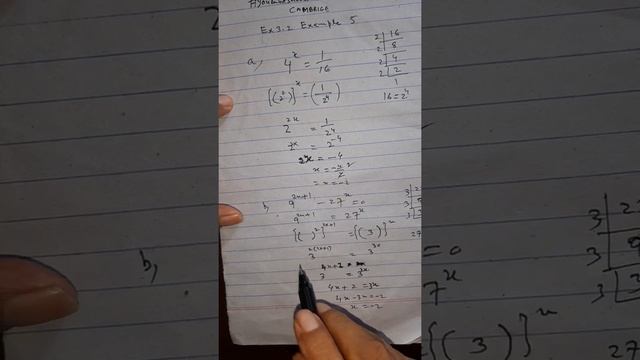 CAMBRIGE
Ex 3.2 Example 5
a, 4^x = 1/16
[(2)^2]^x = (1/2^4)
2^2x = 1/2^4
2^2x = 2^-4
2x = -4
x = -4/2
= x = -2
2 | 16
2 | 8
2 | 4
2 | 2
1
16 = 2^4
b, 9^2x+1 - 27^x = 0
9^2x+1 = 27^x
[( )^2]^2x+1 = [(3)]^x
3^2(2x+1) = 3^3x
3^4x+2 = 3^3x
4x + 2 = 3x
4x - 3x = -2
x = -2